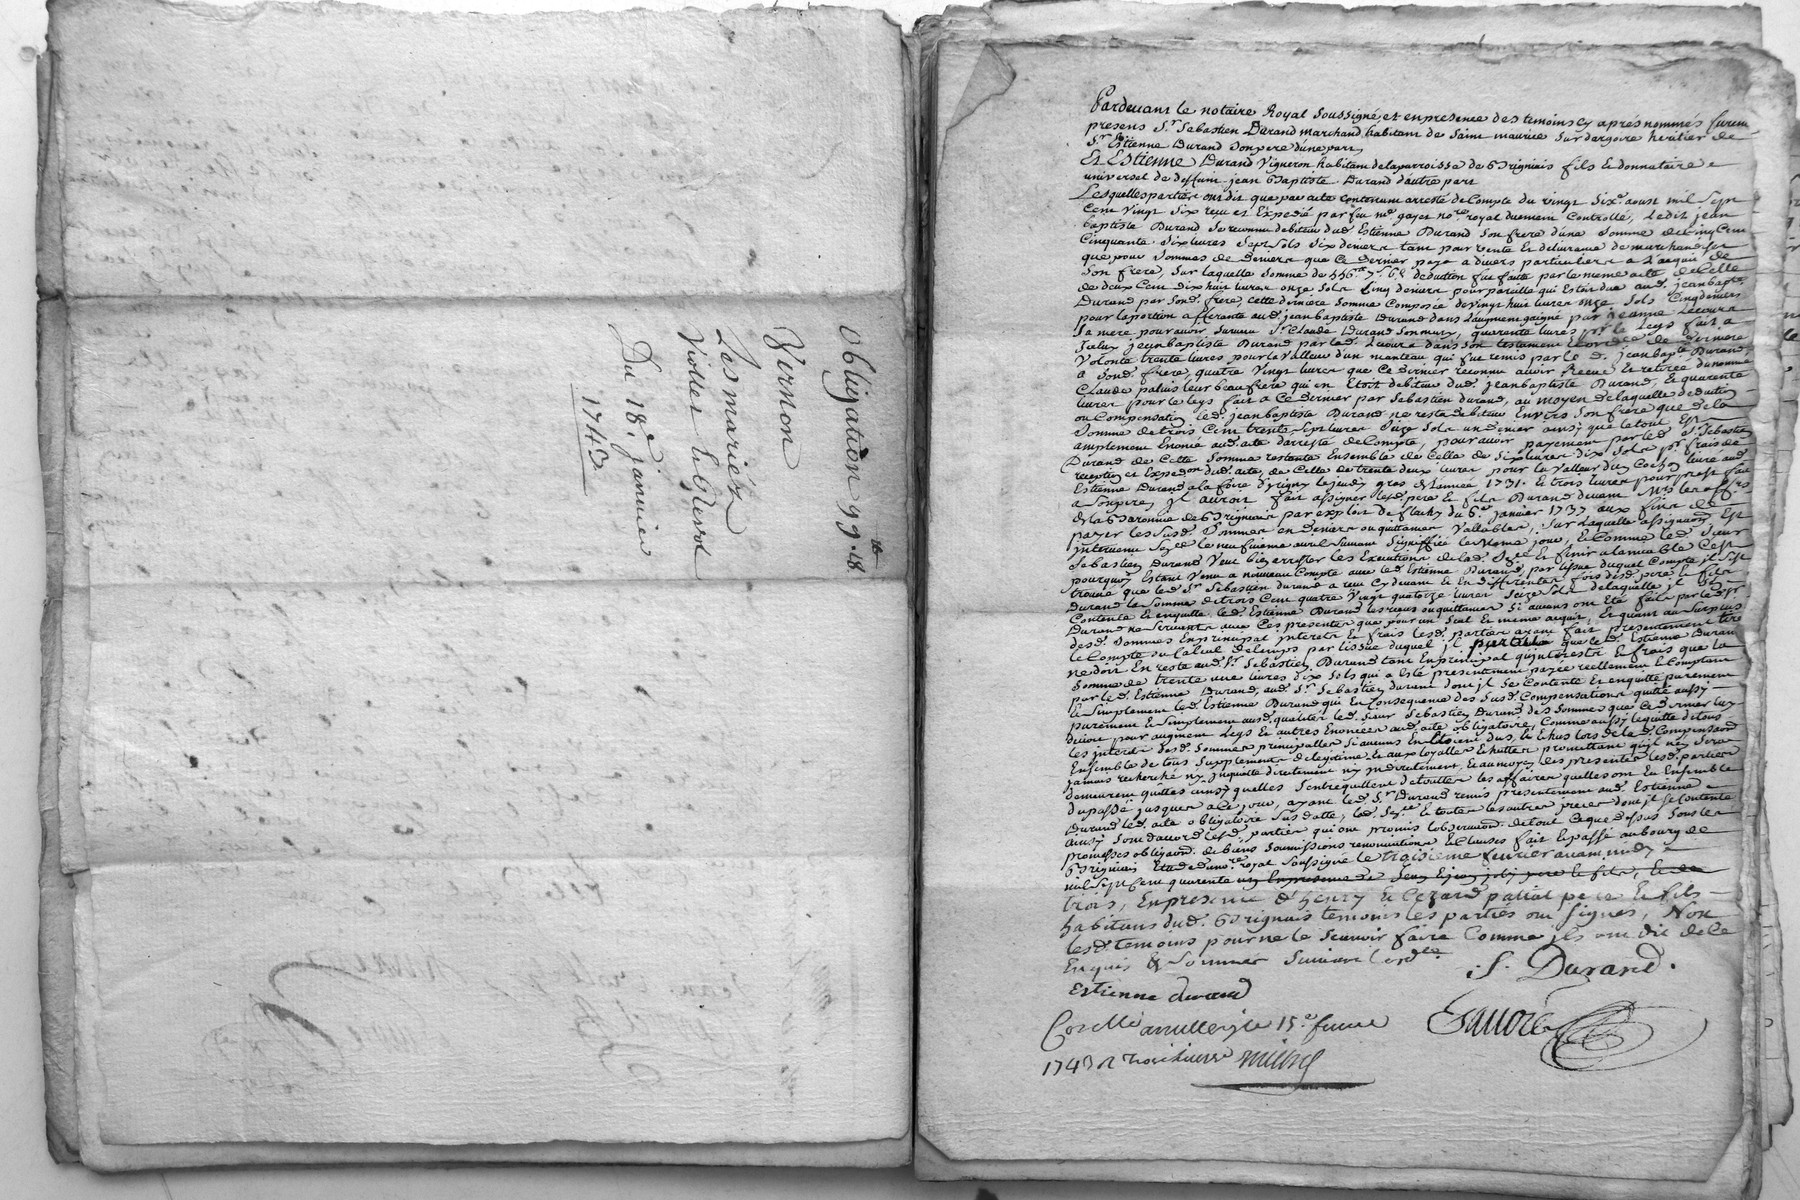 obligation 99.lt 18.
Vernon
Les mariéz
Viollet & Gerol
Du 18.e janvier
1743
Pardevant le notaire Royal soussigné et en presence des temoins cy apres nommés furent
presens Sr. Sebastien Durand marchand habitant de saint maurice sur dargoire heritier de
Sr. Estienne Durand son pere d'une part
Et Estienne Durand Vigneron habitant de la parroisse de Brignais fils & donnataire
universel de deffunt jean Baptiste Durand d'autre part
Lesquelles parties ont dit que par acte contenant arresté de Compte du vingt six.e aoust mil sept
Cent vingt six reçu et Expedié par feu me. gayet nore. royal duement Controllé, Ledit jean
baptiste Durand se reconnu debiteur dud. Estienne Durand son frere d'une somme de Cinq Cent
Cinquante six livres sept sols six deniers tant pour vente & delivrance de marchandises
que pour sommes de deniers que ce dernier paya a divers particuliers a l'acquit de
son frere, sur laquelle somme de 556.lt 7.s 6.d deduction fut faitte par le meme acte de Celle
de deux Cent dix huit livres onze sols Cinq deniers pour pareille qui Estoit due aud. jean bapte.
Durand par sond. frere, cette derniere somme Composée de vingt huit livres onze sols Cinq deniers
pour la portion afferante aud. jean baptiste Durand dans l'augment gaigné par jeanne
sa mere pour avoir survecu Sr. Claude Durand son mary, quarante livres pr. le Legs fait a
jean baptiste Durand par lad. dans son testament & de derniere
Volonté trente livres pour la Valleur d'un manteau qui fut remis par le d. jean bapte. Durand
a sond. frere, quatre Vingt livres que ce dernier reconnu avoir Receu & retirée d'un
Claude leur beaufrere qui en Etoit debiteur dud. jean baptiste Durand, & quarante
livres pour le legs fait a Ce dernier par Sebastien durand, au moyen de laquelle deduction
ou Compensation led. jean baptiste Durand ne resta debiteur Envers son frere que de la
somme de trois Cent trente sept livres seize sols un denier ainsy que le tout Est
amplement Enoncé aud. acte d'arresté de Compte, pour avoir payement par led. Sr. Sebastien
Durand de Cette somme restante Ensemble de Celle de six livres dix sols pr. frais de
reception et Expedon. dud. acte, de Celle de trente deux livres pour la valleur du Cochon livré aud.
Estienne Durand a la foire d'yrigny le jeudy gras de l'année 1731. & trois livres pour prest fait
a son pere, jl auroit fait assigner lesd. pere & fils Durand devant Mrs. les offrs.
de la Baronnie de Brignais par exploit de flachy du 6.e janvier 1737 aux fins de
payer lesusd. sommes en deniers ou quittances Vallables, sur laquelle assignaon. est
intervenu le neufvieme avril suivant signiffiée le meme jour, & Comme led. sieur
Sebastien Durand Veut bien arrester les Executions de lad. & finir a lamiable C'est
pourquoy Estant Venu a nouveau Compte avec led. Estienne Durand, par lissue duquel Compte jl s'est
trouvé que led. Sr. Sebastien durand a reçu Cy devant & En differentes fois desd. pere & fils
Durand la somme de trois Cent quatre Vingt quatorze livres seize sols de laquelle jl se
Contente & en quitte led. Estienne Durand les reçus ou quittances si aucuns ont Eté faits par led. sr
Durand ne servants avec Ces presentes que pour un seul & meme acquit, & quant au surplus
desd. sommes En principal interets & frais lesd. parties ayant fait presentement
le Compte ou Calcul d'eleurs par lissue duquel jl que led. Estienne Durand
ne doit En reste aud. Sr. Sebastien Durand tant En principal qu'interests & frais que la
somme de trente une livres dix sols qui a Eté presentement payée reellement & Comptant
par led. Estienne Durand, aud. Sr. Sebastien durand dont jl se Contente & en quitte purement
& simplement led. Estienne Durand qui En Consequence des susd. Compensations quitte aussy
purement & simplement ausd. qualitez led. sieur Sebastien Durand des sommes que Ce dernier luy
devoit pour augment legs & autres Enoncez aud. acte obligatoire, Comme aussy le quitte de tous
les interets desd. sommes principalles si aucuns En Etoient dus, & Echus lors de lad. Compensaon.
Ensemble de tous supplements de legitime & aux loyalles & hottes promettant qu'jl n'en sera
jamais recherché ny jnquietté directement ny indirectement, & au moyen des presentes lesd. parties
demeurent quittes ainsy quelles s'entrequittent de touttes les affaires quelles ont eu Ensemble
du passé jusques a Ce jour, ayant led. Sr. Durand remis presentement aud. Estienne
Durand led. acte obligatoire sus datté, lad. & touttes les autres pieces dont jl se Contente
ainsy sont d'accord lesd. parties qui ont promis l'observaon. de tout Ce que dessus sous les
promesses obligaons. de biens soumissions renonciations & Clauses fait & passé au bourg de
Brignais Etude du nore. royal soussigné le troisieme fevrier avant midy
mil sept Cent quarente
trois, En presence d'henry & Cezard patiat pere & fils
habitans dud. Brignais temoins les parties ont signés, Non
lesd. temoins pour ne le scavoir faire Comme jls ont dit de ce
Enquis & sommés suivant lordce.
S. Durand.
Estienne durand
Favore
Conllé a le 15.e fevrier
1743 R